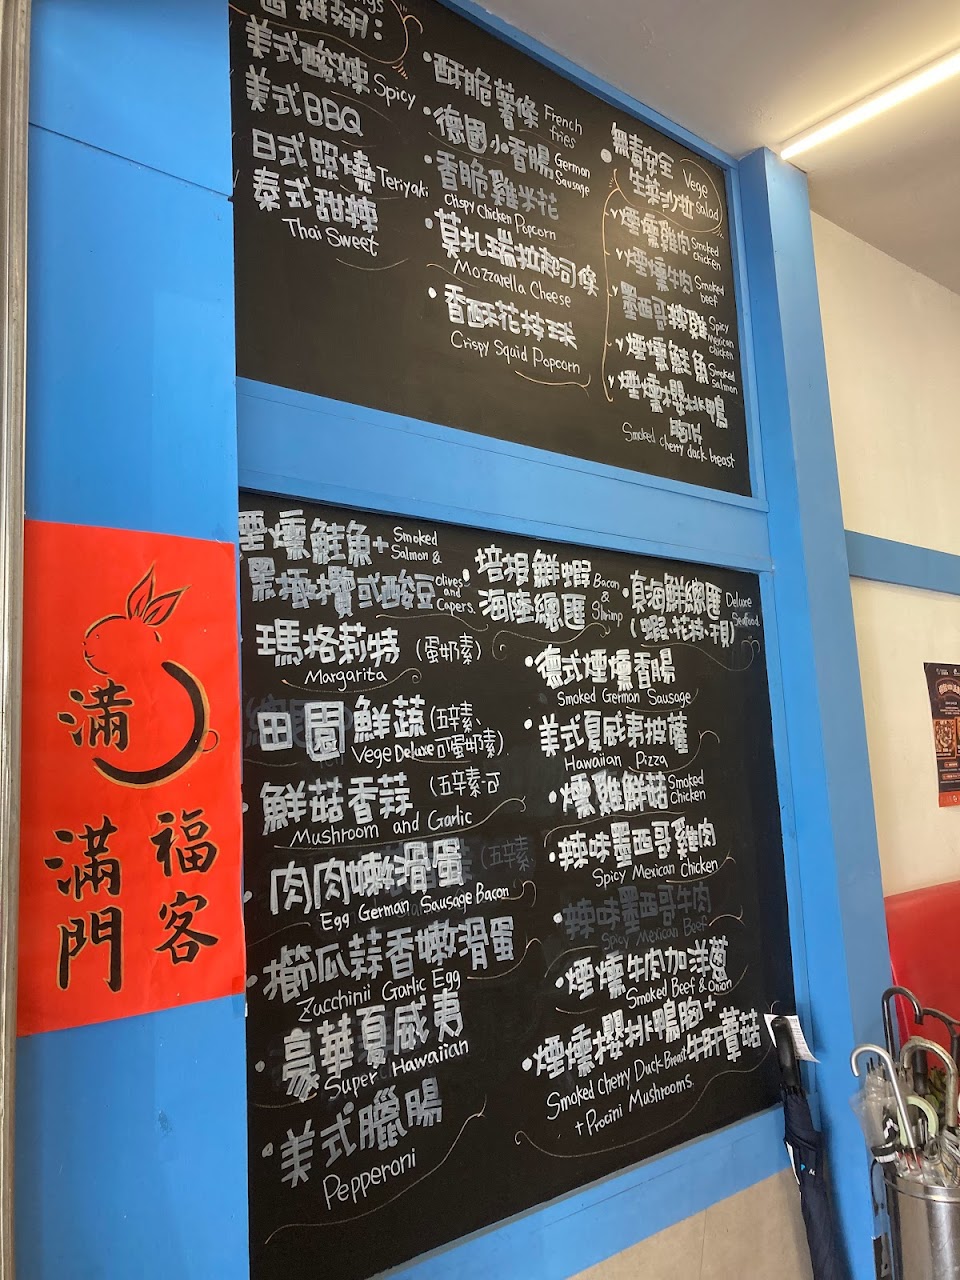 美式酸辣 Spicy
美式BBQ
日式照燒 Teriyaki
泰式甜辣
Thai Sweet
•酥脆薯條 French fries
•德國小香腸 German Sausage
•香脆雞米花
Crispy Chicken Popcorn
•莫扎瑞拉起司條
Mozzarella Cheese
•香酥花枝球
Crispy Squid Popcorn
•無毒安全 Vege
生菜沙拉 Salad
v煙燻雞肉 Smoked chicken
v煙燻牛肉 Smoked beef
v墨西哥辣雞 Spicy Mexican chicken
v煙燻鮭魚 Smoked Salmon
v煙燻櫻桃鴨
胸片
Smoked cherry duck breast
煙燻鮭魚+ Smoked Salmon &
黑橄欖或酸豆 olives and Capers.
瑪格莉特 (蛋奶素)
Margarita
田園鮮蔬 (五辛素、可蛋奶素)
Vege Deluxe
•鮮菇香蒜 (五辛素可
Mushroom and Garlic
•肉肉嫩滑蛋
Egg German Sausage Bacon
•櫛瓜蒜香嫩滑蛋
Zucchinii Garlic Egg
•豪華夏威夷
Super Hawaiian
•美式臘腸
Pepperoni
•培根鮮蝦 Bacon & Shrimp
海陸總匯
•真海鮮總匯 Deluxe Seafood
(蝦、花枝、干貝)
•德式煙燻香腸
Smoked German Sausage
•美式夏威夷披薩
Hawaiian Pizza
•燻雞鮮菇 Smoked Chicken
•辣味墨西哥雞肉
Spicy Mexican Chicken
•辣味墨西哥牛肉
Spicy Mexican Beef
•煙燻牛肉加洋蔥
Smoked Beef & Onion
•煙燻櫻桃鴨胸+牛肝蕈菇
Smoked Cherry Duck Breast
+ Procini Mushrooms.
滿
福客
滿門